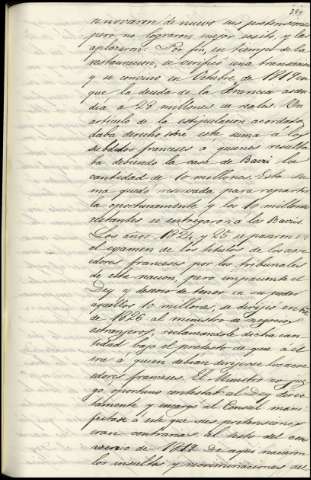 renovaron de nuevo sus pretensiones
pero no lograron mejor exito, y las
aplazaron. Por fin, en tiempo de la
restauracion, se verificó una transaccion
y se convino en Octubre de 1819
que la deuda de la Francia ascen
dia á 28 millones de reales. Un
articulo de la estipulacion acordada
daba derecho sobre esta suma á los
subditos franceses a quienes resulta
ba debiendo la casa de Bacri la
cantidad de 10 millones. Esta su
ma quedó reservada para repartir
la oportunamente y los 18 millones
restantes se entregaron á los Bacris.
Los años 1824 y 25 se pasaron en
el examen de los titulos de los acree
dores franceses por los tribunales
de esta nacion, pero impaciente el
Dey y deseoso de tener en su poder
aquellos 10 millones, se dirijió en
de 1826 al ministro de negocios
estrangeros, reclamandole dicha can
tidad bajo el pretesto de que á él
era á quien debian dirijirse los acree
dores franceses. El Ministro no juz
gó oportuno contestar al Dey direc
tamente y encargó al Consul mani
festase á este que sus pretensiones
eran contrarias al testo del con
venio de 1819. De aqui nacieron
los insultos y recriminaciones del